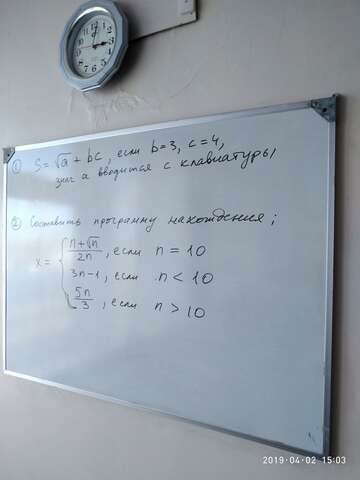 ① S = √a + bc, если b=3, c=4,
знач а вводится с клавиатуры
② Составить программу нахождения;
x = { (n+√n)/2n, если n = 10
3n-1, если n < 10
5n/3, если n > 10
2019-04-02 15:03